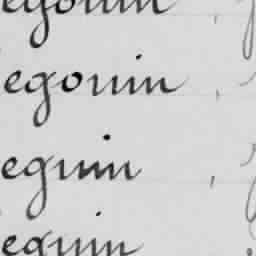 egouin ,
egouin ,
eguin ,
eguin